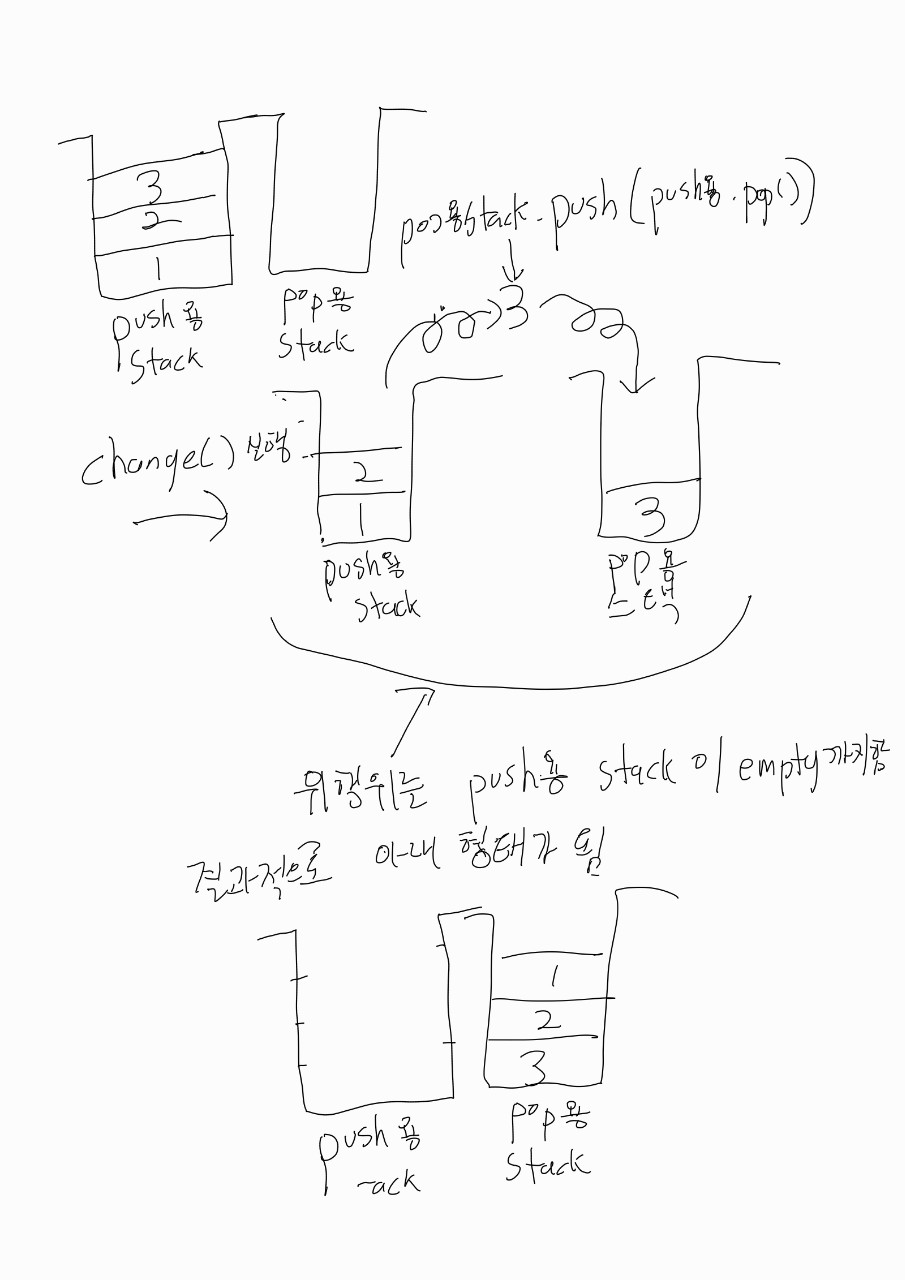 3
2
1
push용
Stack
pop용
stack
pop용stack.push(push용.pop())
3
change() 실행
2
1
push용
stack
3
pop용
스택
위행위는 push용 stack이 empty까지함
결과적으로 아래 형태가 됨
1
2
3
push용
-ack
pop용
stack